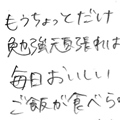 もうちょっとだけ
勉強頑張れば
毎日おいしい
ご飯が食べら